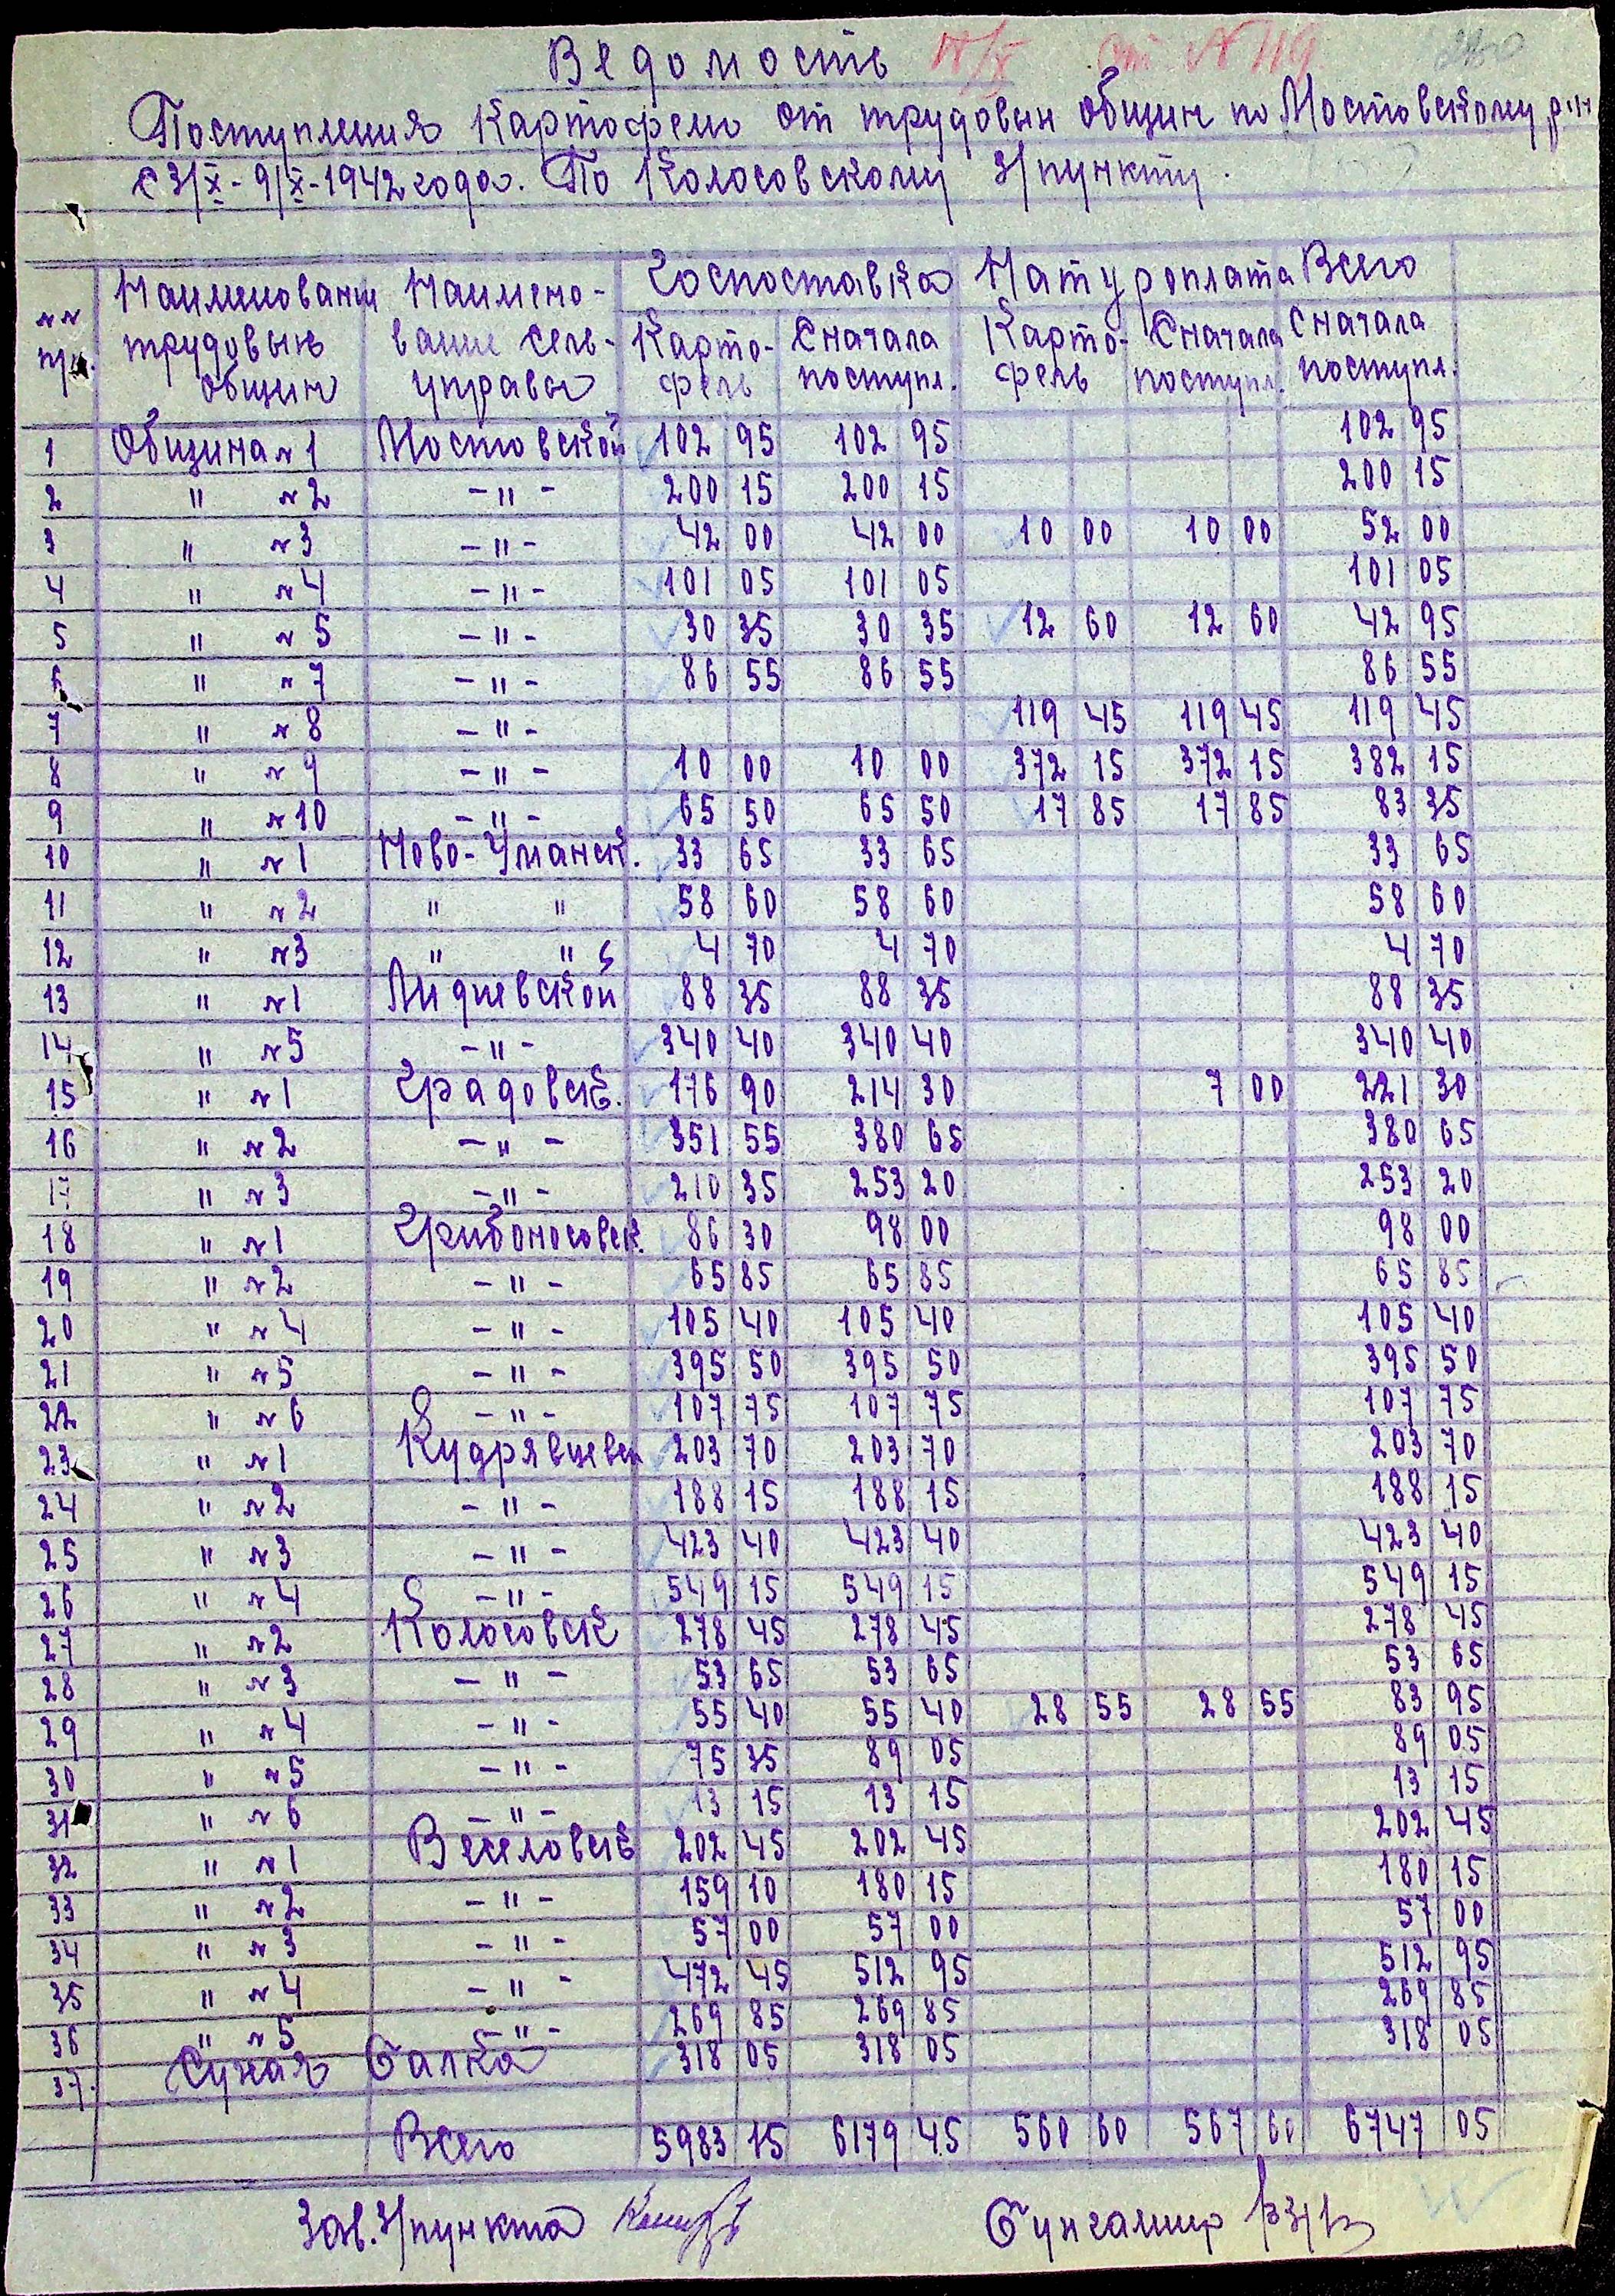 Ведомость
от № 119
Поступления картофеля от трудовых общин по Мостовскому р-н
с 3/X - 9/X - 1942 года. По Колосовскому з/пункту.
№№ п/п. Наименование трудовых общин Наименование сель-управы Госпоставка Натуроплата Всего
Картофель Сначала поступл. Картофель Сначала поступл. Сначала поступл.
1 Община №1 Мостовской 102 95 102 95 102 95
2 " №2 -"- 200 15 200 15 200 15
3 " №3 -"- 42 00 42 00 10 00 10 00 52 00
4 " №4 -"- 101 05 101 05 101 05
5 " №5 -"- 30 35 30 35 12 60 12 60 42 95
6 " №7 -"- 86 55 86 55 86 55
7 " №8 -"- 119 45 119 45 119 45
8 " №9 -"- 10 00 10 00 372 15 372 15 382 15
9 " №10 -"- 65 50 65 50 17 85 17 85 83 35
10 " №1 Ново-Уманск. 33 65 33 65 33 65
11 " №2 " " 58 60 58 60 58 60
12 " №3 " " 4 70 4 70 4 70
13 " №1 Лидиевской 88 35 88 35 88 35
14 " №5 -"- 340 40 340 40 340 40
15 " №1 Градовск. 176 90 214 30 7 00 221 30
16 " №2 -"- 351 55 380 65 380 65
17 " №3 -"- 210 35 253 20 253 20
18 " №1 Грибоносовск. 86 30 98 00 98 00
19 " №2 -"- 65 85 65 85 65 85
20 " №4 -"- 105 40 105 40 105 40
21 " №5 -"- 395 50 395 50 395 50
22 " №6 -"- 107 75 107 75 107 75
23 " №1 Кудрявцевск 203 70 203 70 203 70
24 " №2 -"- 188 15 188 15 188 15
25 " №3 -"- 423 40 423 40 423 40
26 " №4 -"- 549 15 549 15 549 15
27 " №2 Колосовск 278 45 278 45 278 45
28 " №3 -"- 53 65 53 65 53 65
29 " №4 -"- 55 40 55 40 28 55 28 55 83 95
30 " №5 -"- 75 35 89 05 89 05
31 " №6 -"- 13 15 13 15 13 15
32 " №1 Веселовск 202 45 202 45 202 45
33 " №2 -"- 159 10 180 15 180 15
34 " №3 -"- 57 00 57 00 57 00
35 " №4 -"- 472 45 512 95 512 95
36 " №5 -"- 269 85 269 85 269 85
37. Сухая Балка 318 05 318 05 318 05
Всего 5983 15 6179 45 560 60 567 60 6747 05
Зав. З/пункта
Бухгалтер